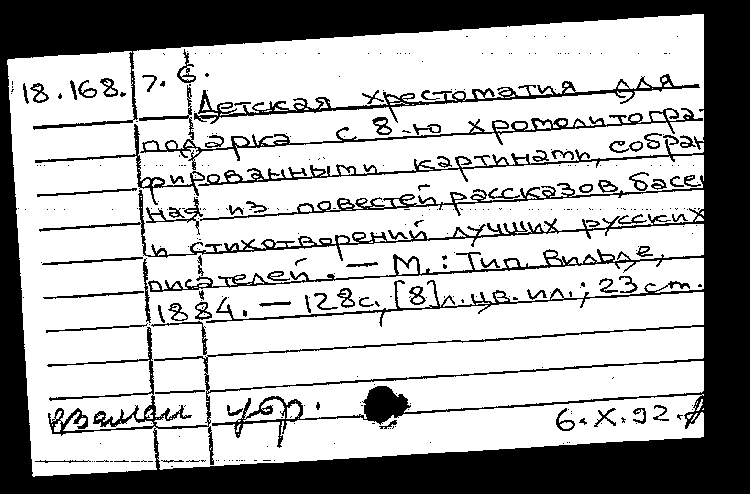 18.168.7.6.
Детская хрестоматия для
подарка с 8-ю хромолитогра-
фированными картинами, собран
ная из повестей, рассказов, басен
и стихотворений лучших русских
писателей. — М.: Тип. Вильде,
1884. — 128с., [8]л.цв.ил.; 23 ст.
взамен утр.
6.X.92.